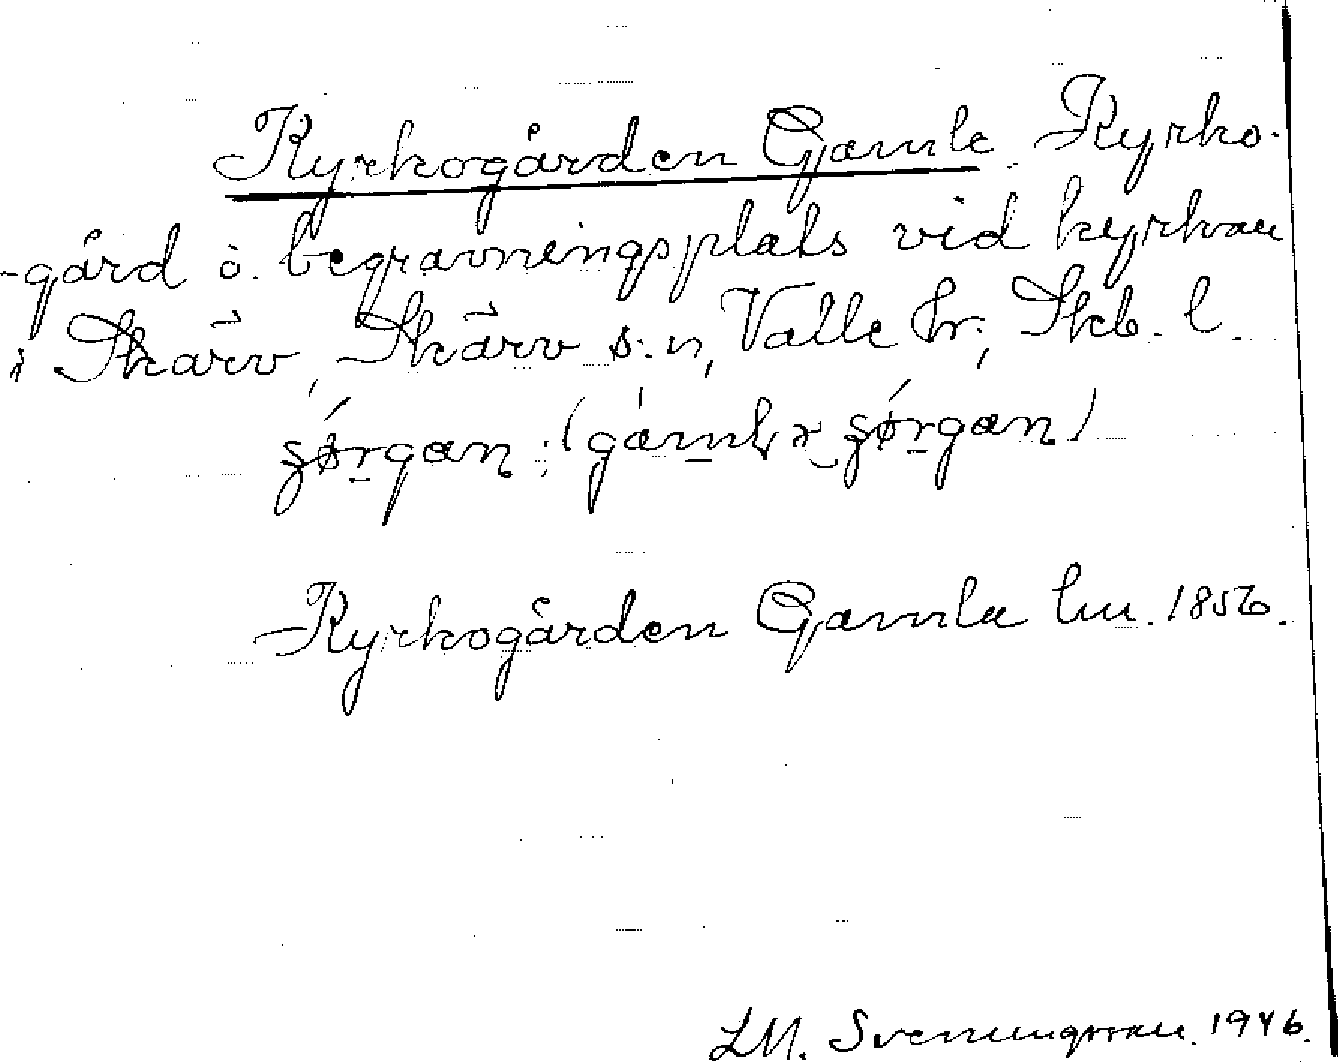 Kyrkogården Gamle. Kyrko-
-gård o. begravningsplats vid kyrkan
i Skärv, Skärv s:n, Valle hr; Skb. l.
Kyrkogården Gamla lm. 1856.
LM. Svenungsson. 1946.